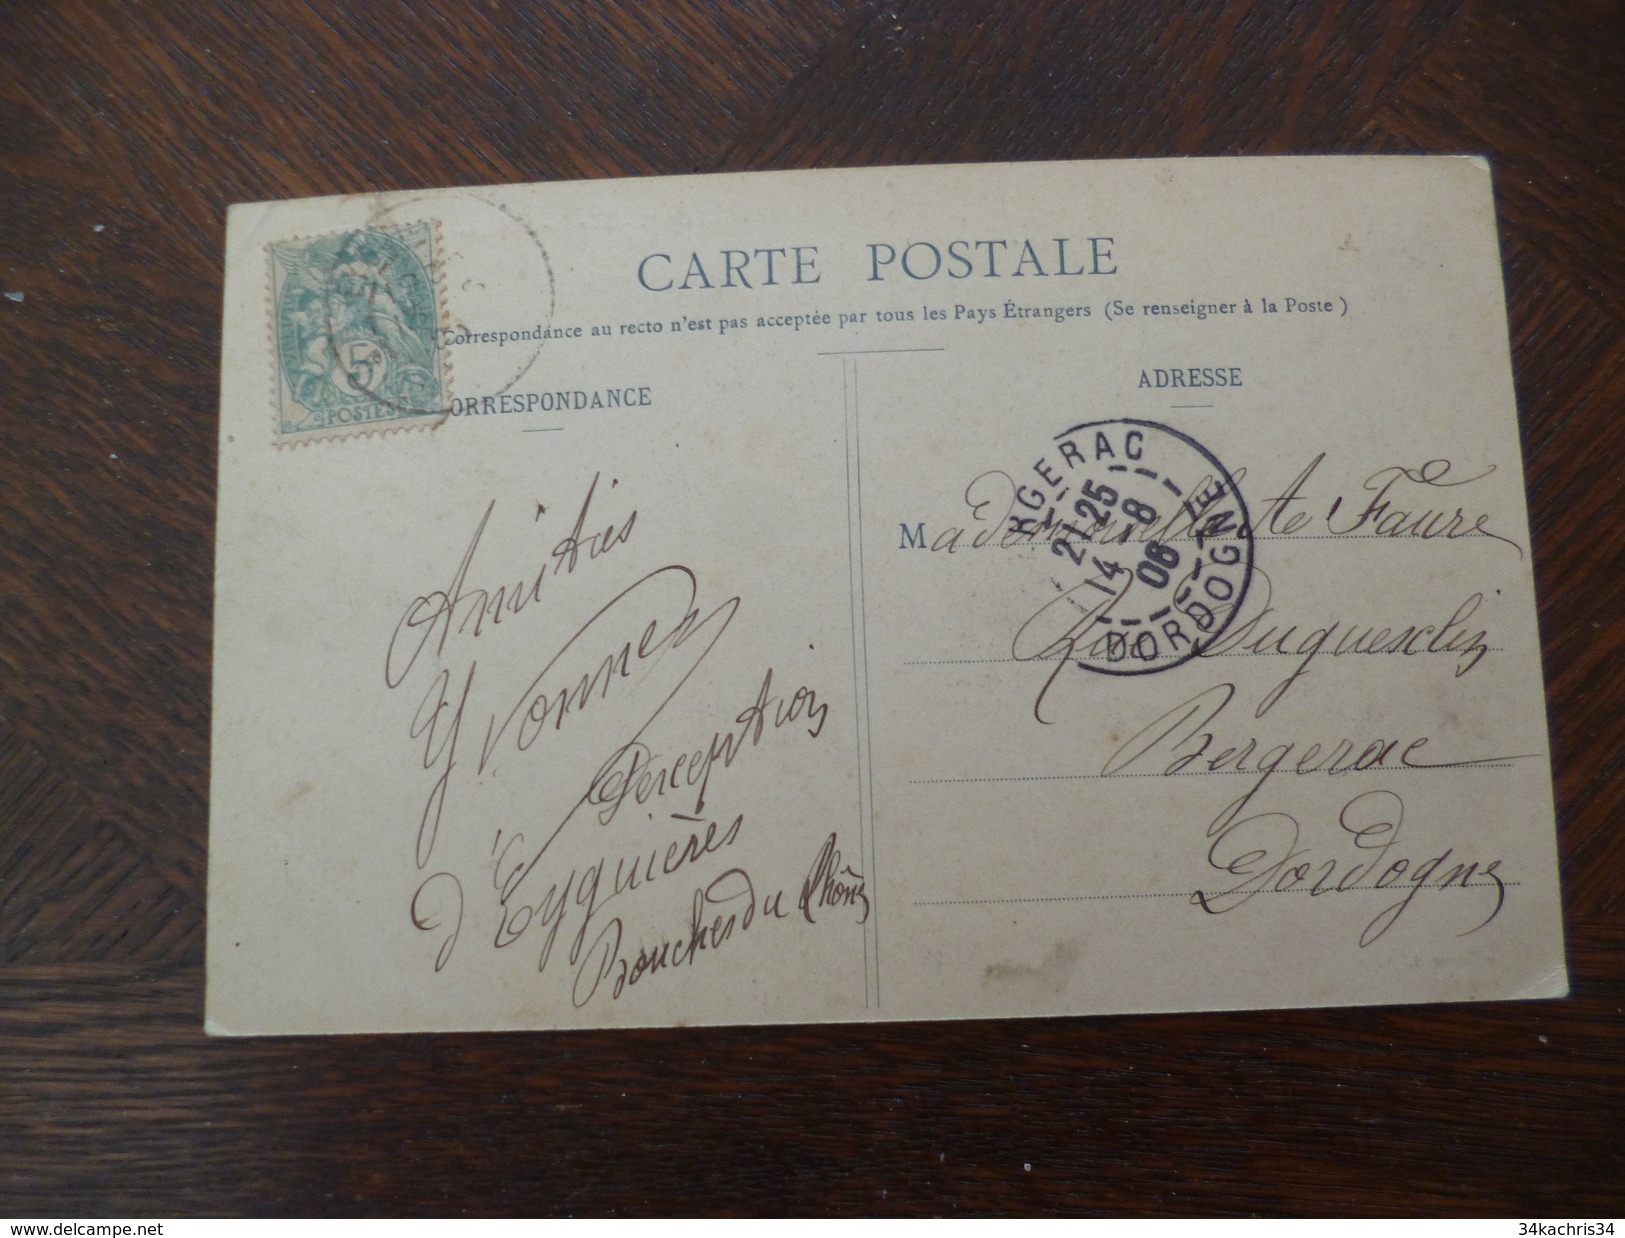 CARTE POSTALE
Correspondance au recto n'est pas acceptée par tous les Pays Étrangers (Se renseigner à la Poste)
ORRESPONDANCE
ADRESSE
5c
POSTES
Amitiés
Yvonne
Perception
d'Eyguières
Bouches du Rhône
RGERAC
21 25
14 - 8
06
DORDOGNE
Mademoiselle Faure
Rue Duguesclin
Bergerac
Dordogne
www.delcampe.net
34kachris34